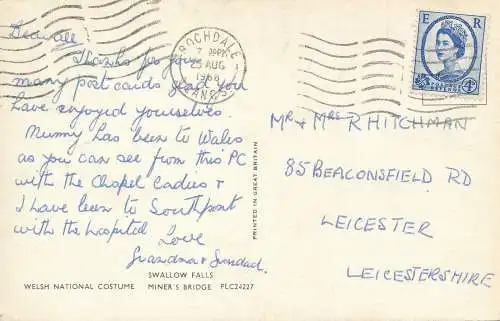 Dear all
Thanks for your
many post cards glad you
have enjoyed yourselves.
Mummy has been to Wales
as you can see from this PC
with the Chapel Ladies &
I have been to Southport
with the hospital Love
Grandma & Grandad.
SWALLOW FALLS
WELSH NATIONAL COSTUME MINER'S BRIDGE PLC24227
PRINTED IN GREAT BRITAIN
ROCHDALE
25 AUG
1968
LANCS
E R
4D
MR & MRS R HITCHMAN
85 BEACONSFIELD RD
LEICESTER
LEICESTERSHIRE